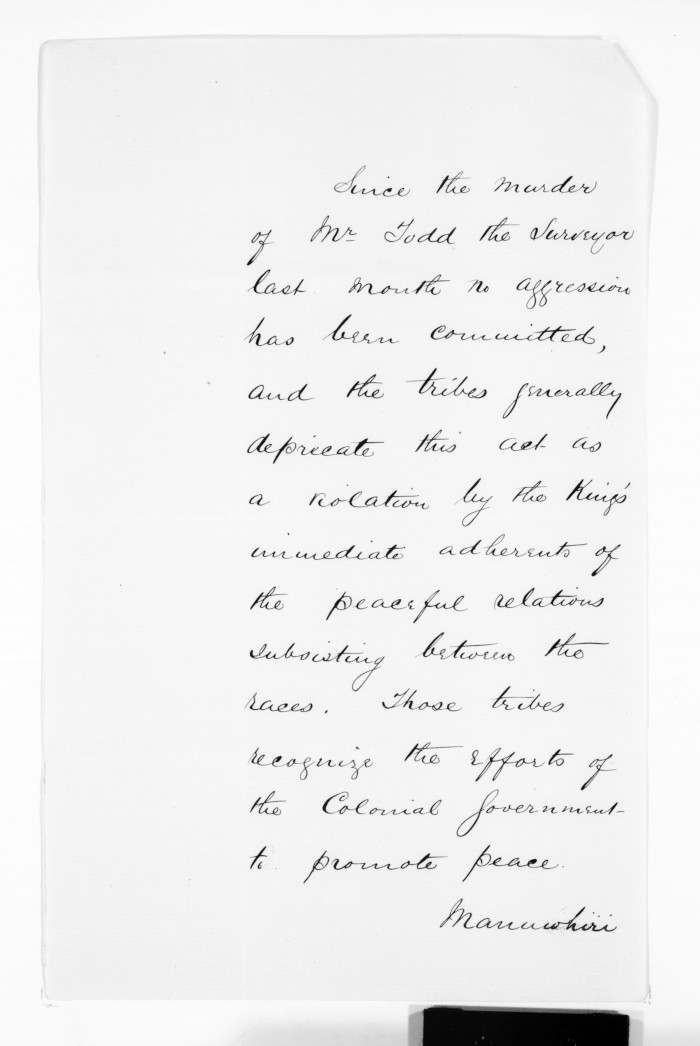 Since the murder
of Mr Todd the Surveyor
last month no aggression
has been committed,
and the tribes generally
depricate this act as
a violation by the King's
immediate adherents of
the peaceful relations
subsisting between the
races. Those tribes
recognize the efforts of
the Colonial Government
to promote peace.
Manuwhiri